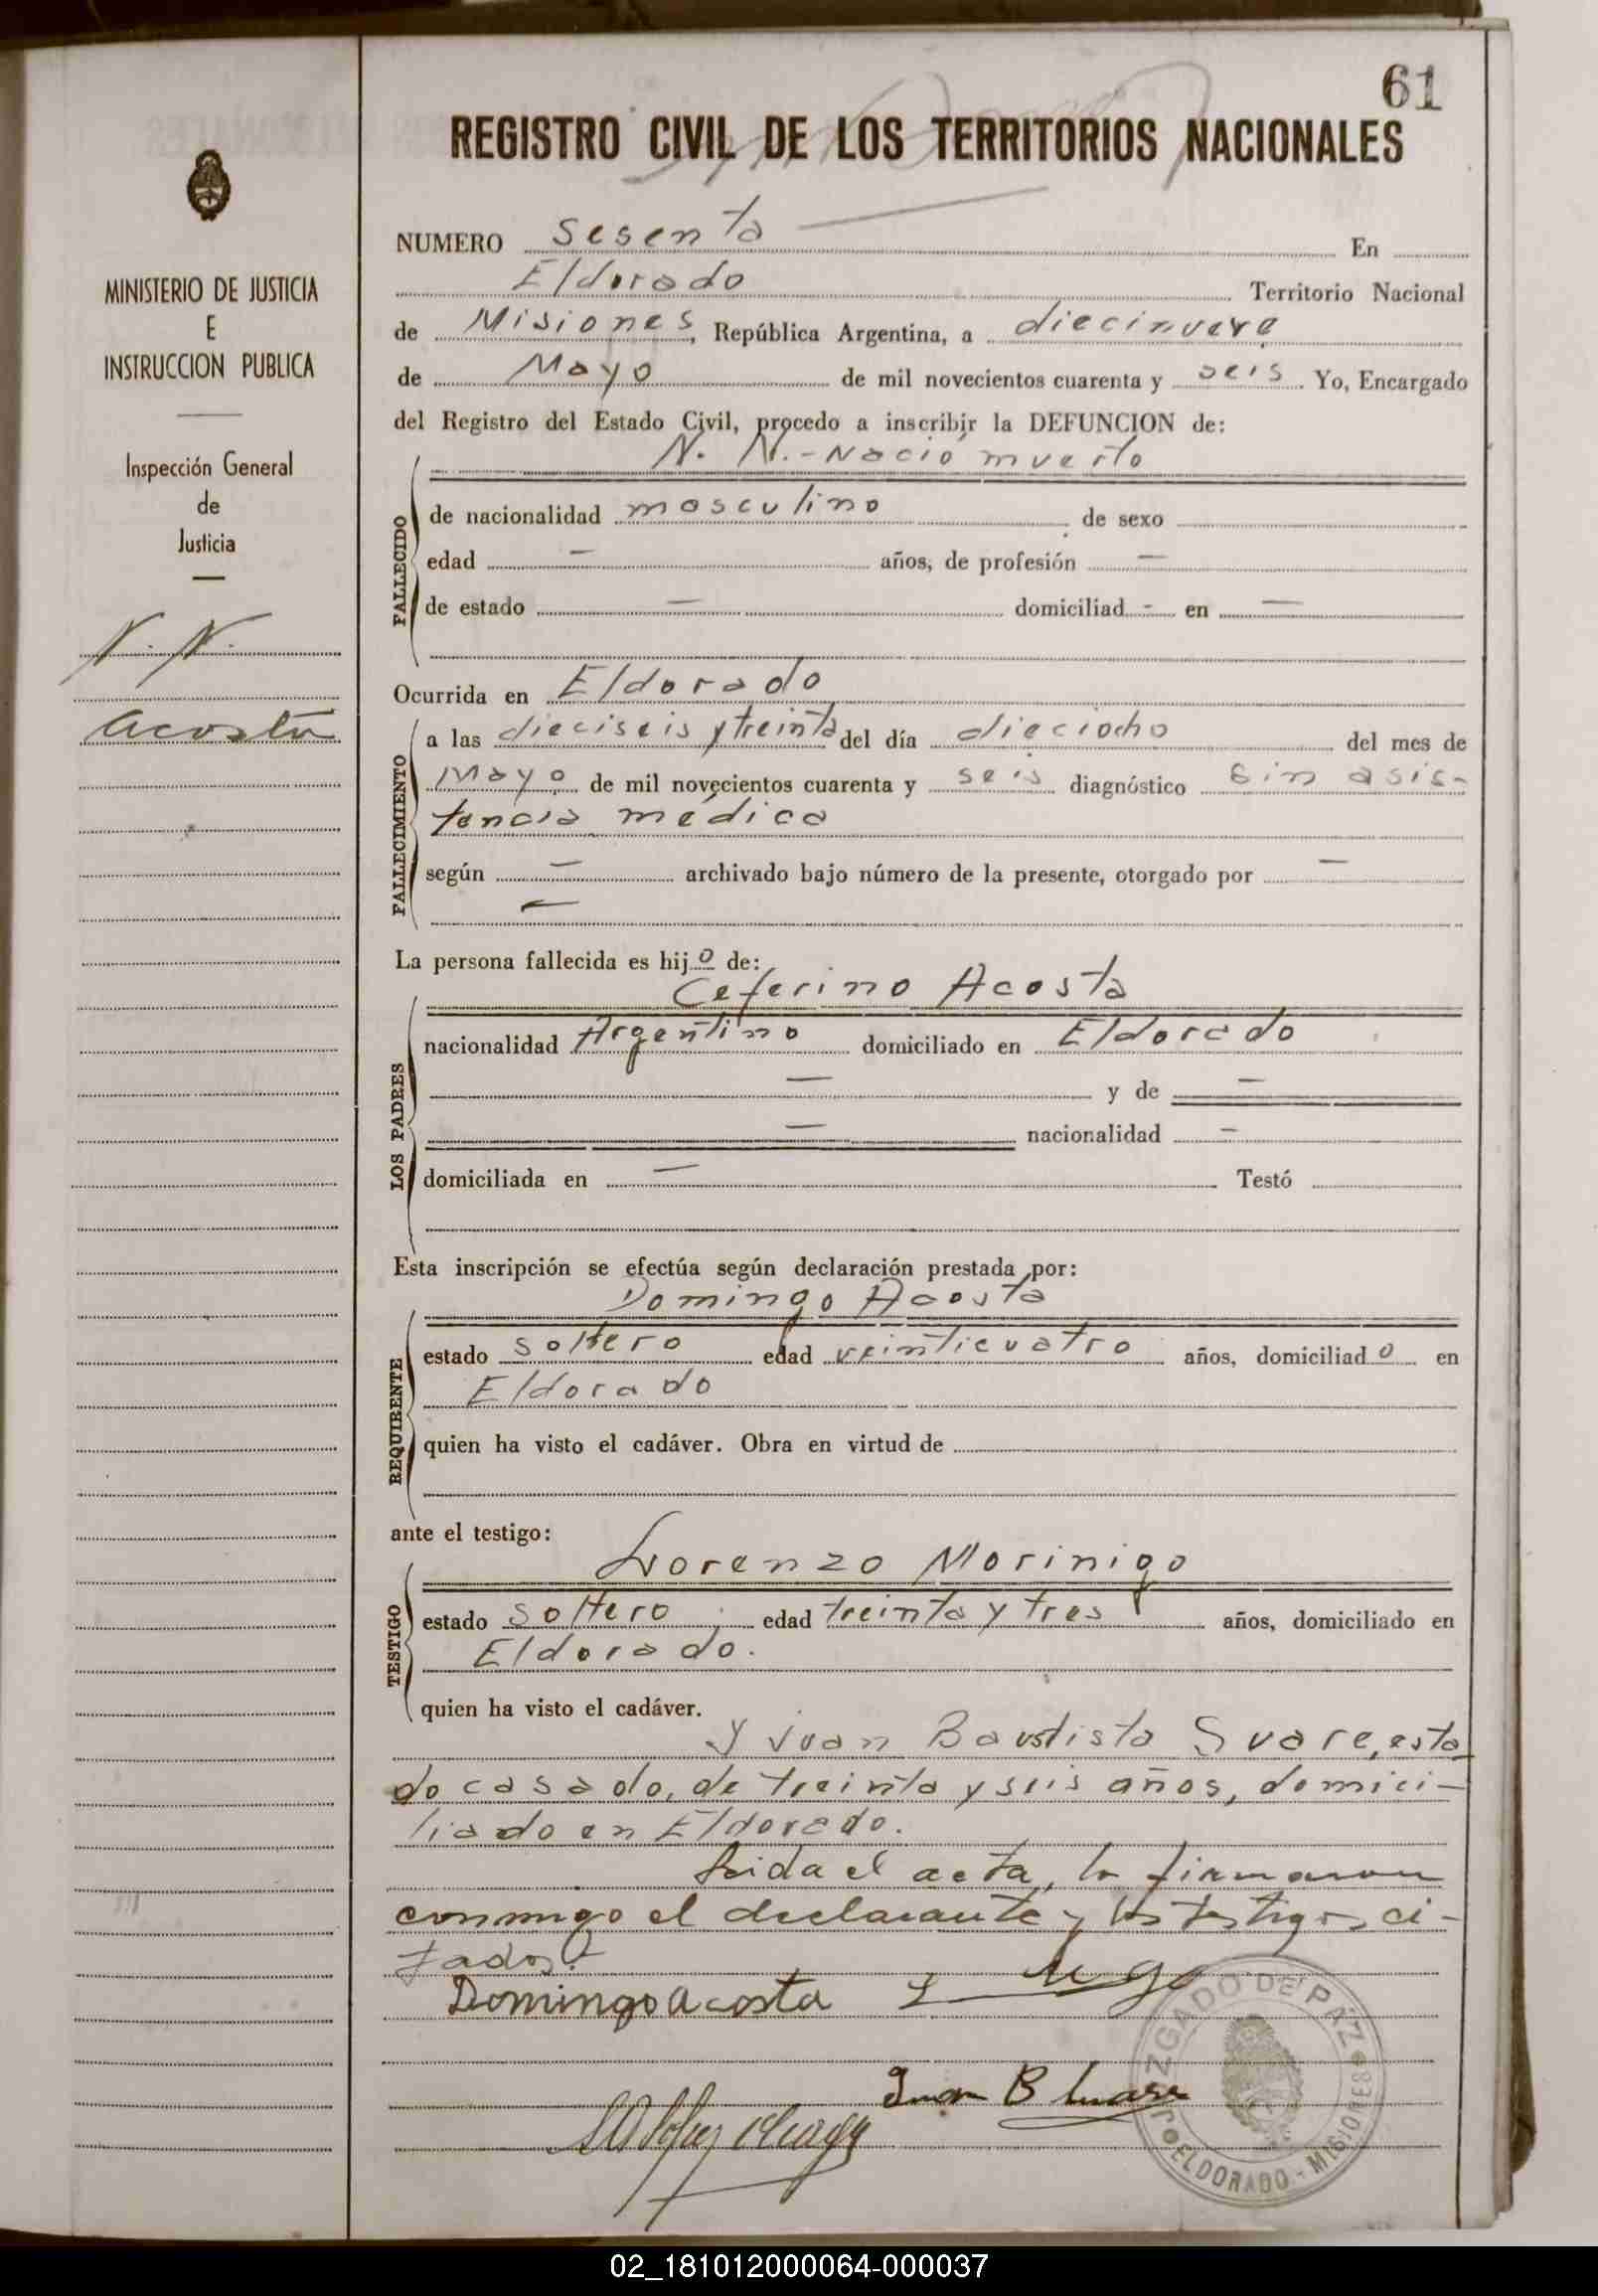 61
REGISTRO CIVIL DE LOS TERRITORIOS NACIONALES
MINISTERIO DE JUSTICIA
E
INSTRUCCION PUBLICA
Inspección General
de
Justicia
N. N.
Acosta
NUMERO sesenta En
Eldorado Territorio Nacional
de Misiones, República Argentina, a diecinueve
de Mayo de mil novecientos cuarenta y seis. Yo, Encargado
del Registro del Estado Civil, procedo a inscribir la DEFUNCION de:
N. N.- Nació muerto
FALLECIDO
de nacionalidad masculino de sexo
edad — años, de profesión —
de estado — domiciliad - en —
Ocurrida en Eldorado
FALLECIMIENTO
a las dieciseis y treinta del día dieciocho del mes de
Mayo de mil novecientos cuarenta y seis diagnóstico Sin asis-
tencia médica
según — archivado bajo número de la presente, otorgado por —
—
La persona fallecida es hijo de:
Ceferino Acosta
LOS PADRES
nacionalidad Argentino domiciliado en Eldorado
— y de —
— nacionalidad —
domiciliada en — Testó
Esta inscripción se efectúa según declaración prestada por:
Domingo Acosta
REQUIRENTE
estado soltero edad veinticuatro años, domiciliado en
Eldorado
quien ha visto el cadáver. Obra en virtud de
ante el testigo:
Lorenzo Morinigo
TESTIGO
estado soltero edad treinta y tres años, domiciliado en
Eldorado.
quien ha visto el cadáver.
y Juan Baustista Suare, esta
do casado, de treinta y seis años, domici-
liado en Eldorado.
Leida el acta, la firmaron
conmigo el declarante y los testigos ci-
tados.-
Domingo Acosta
Juan B Suare
JUZGADO DE PAZ
ELDORADO - MISIONES
02_181012000064-000037